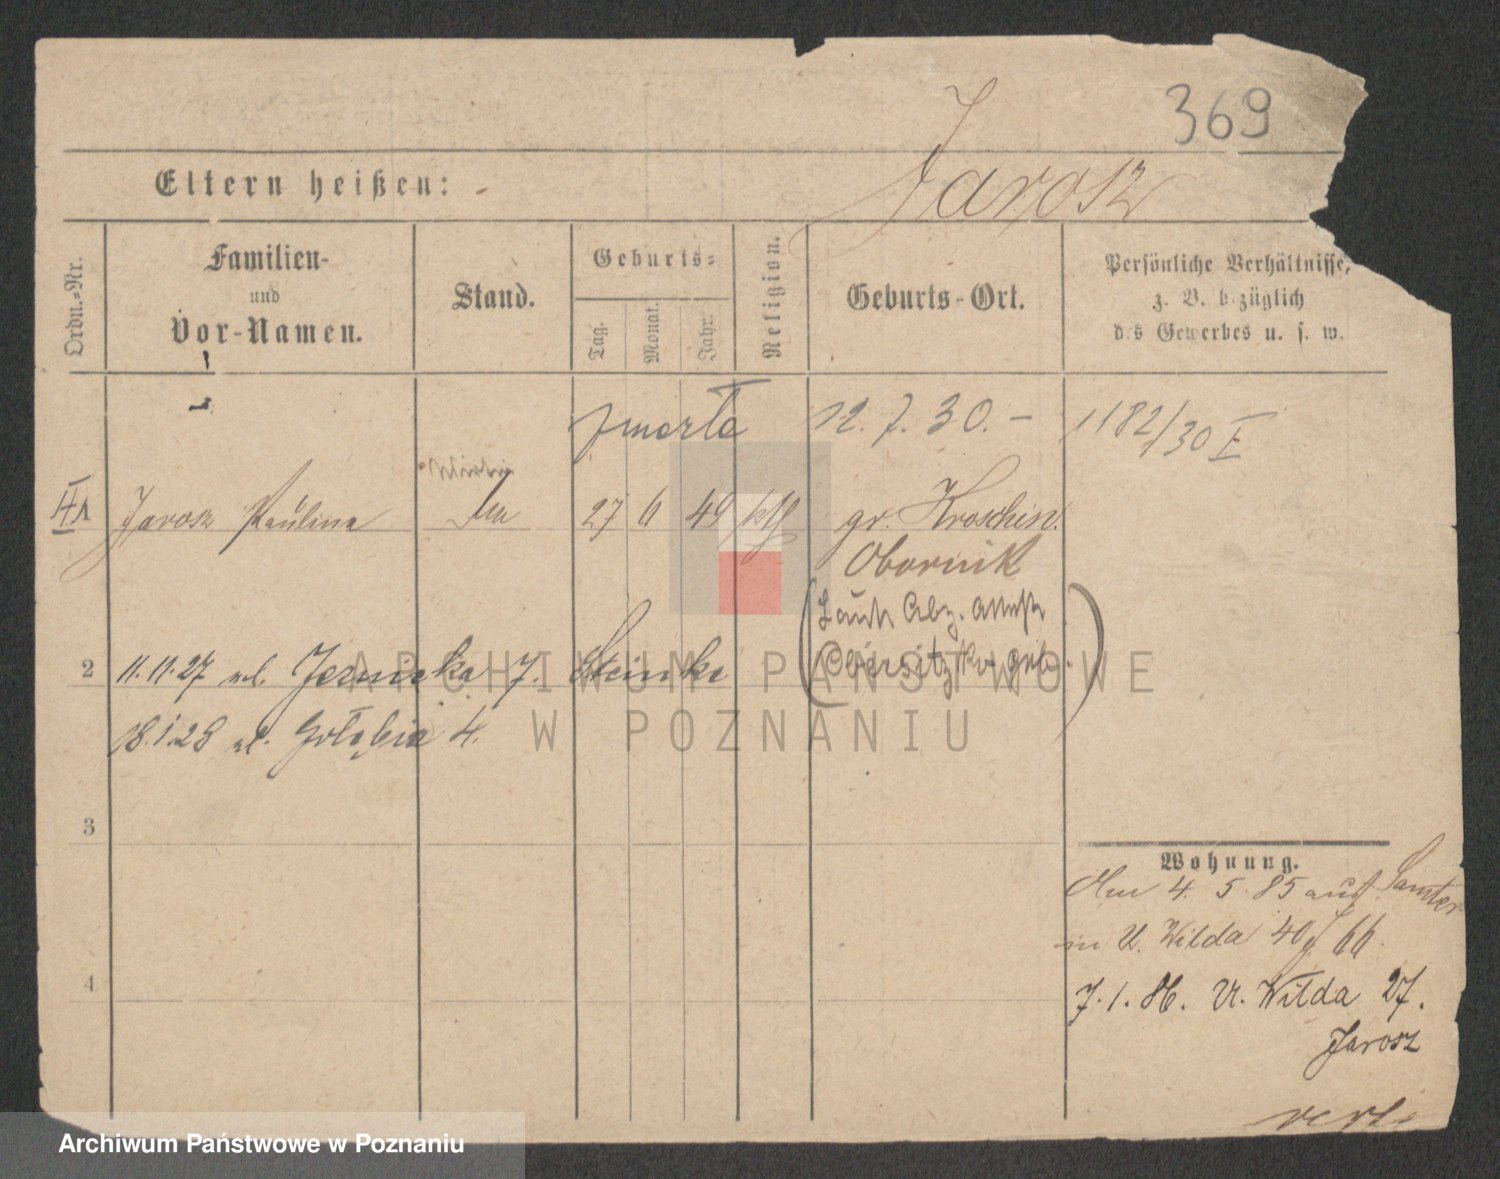 369
Jarosz
Eltern heißen:
Ordn.-Nr.
Familien-
und
Vor-Namen.
Stand.
Geburts-
Tag.
Monat.
Jahr.
Religion.
Geburts-Ort.
Persönliche Verhältnisse,
z. B. bezüglich
des Gewerbes u. s. w.
zmarła 12.7.30.- 1182/30 I
Jarosz Paulina 27 6 49 kth gr. Kroschin.
Obornik
(Laut Abz. Attest
geb.)
2 11.11.27 ul. 7. Steinke
18.1.28 ul. Gołębia 4.
3
4
Wohnung.
4. 5. 85 aus Samter
in U. Wilda 40 66.
7.1.86. U. Wilda 27.
Jarosz
verte
ARCHIWUM PAŃSTWOWE
W POZNANIU
Archiwum Państwowe w Poznaniu